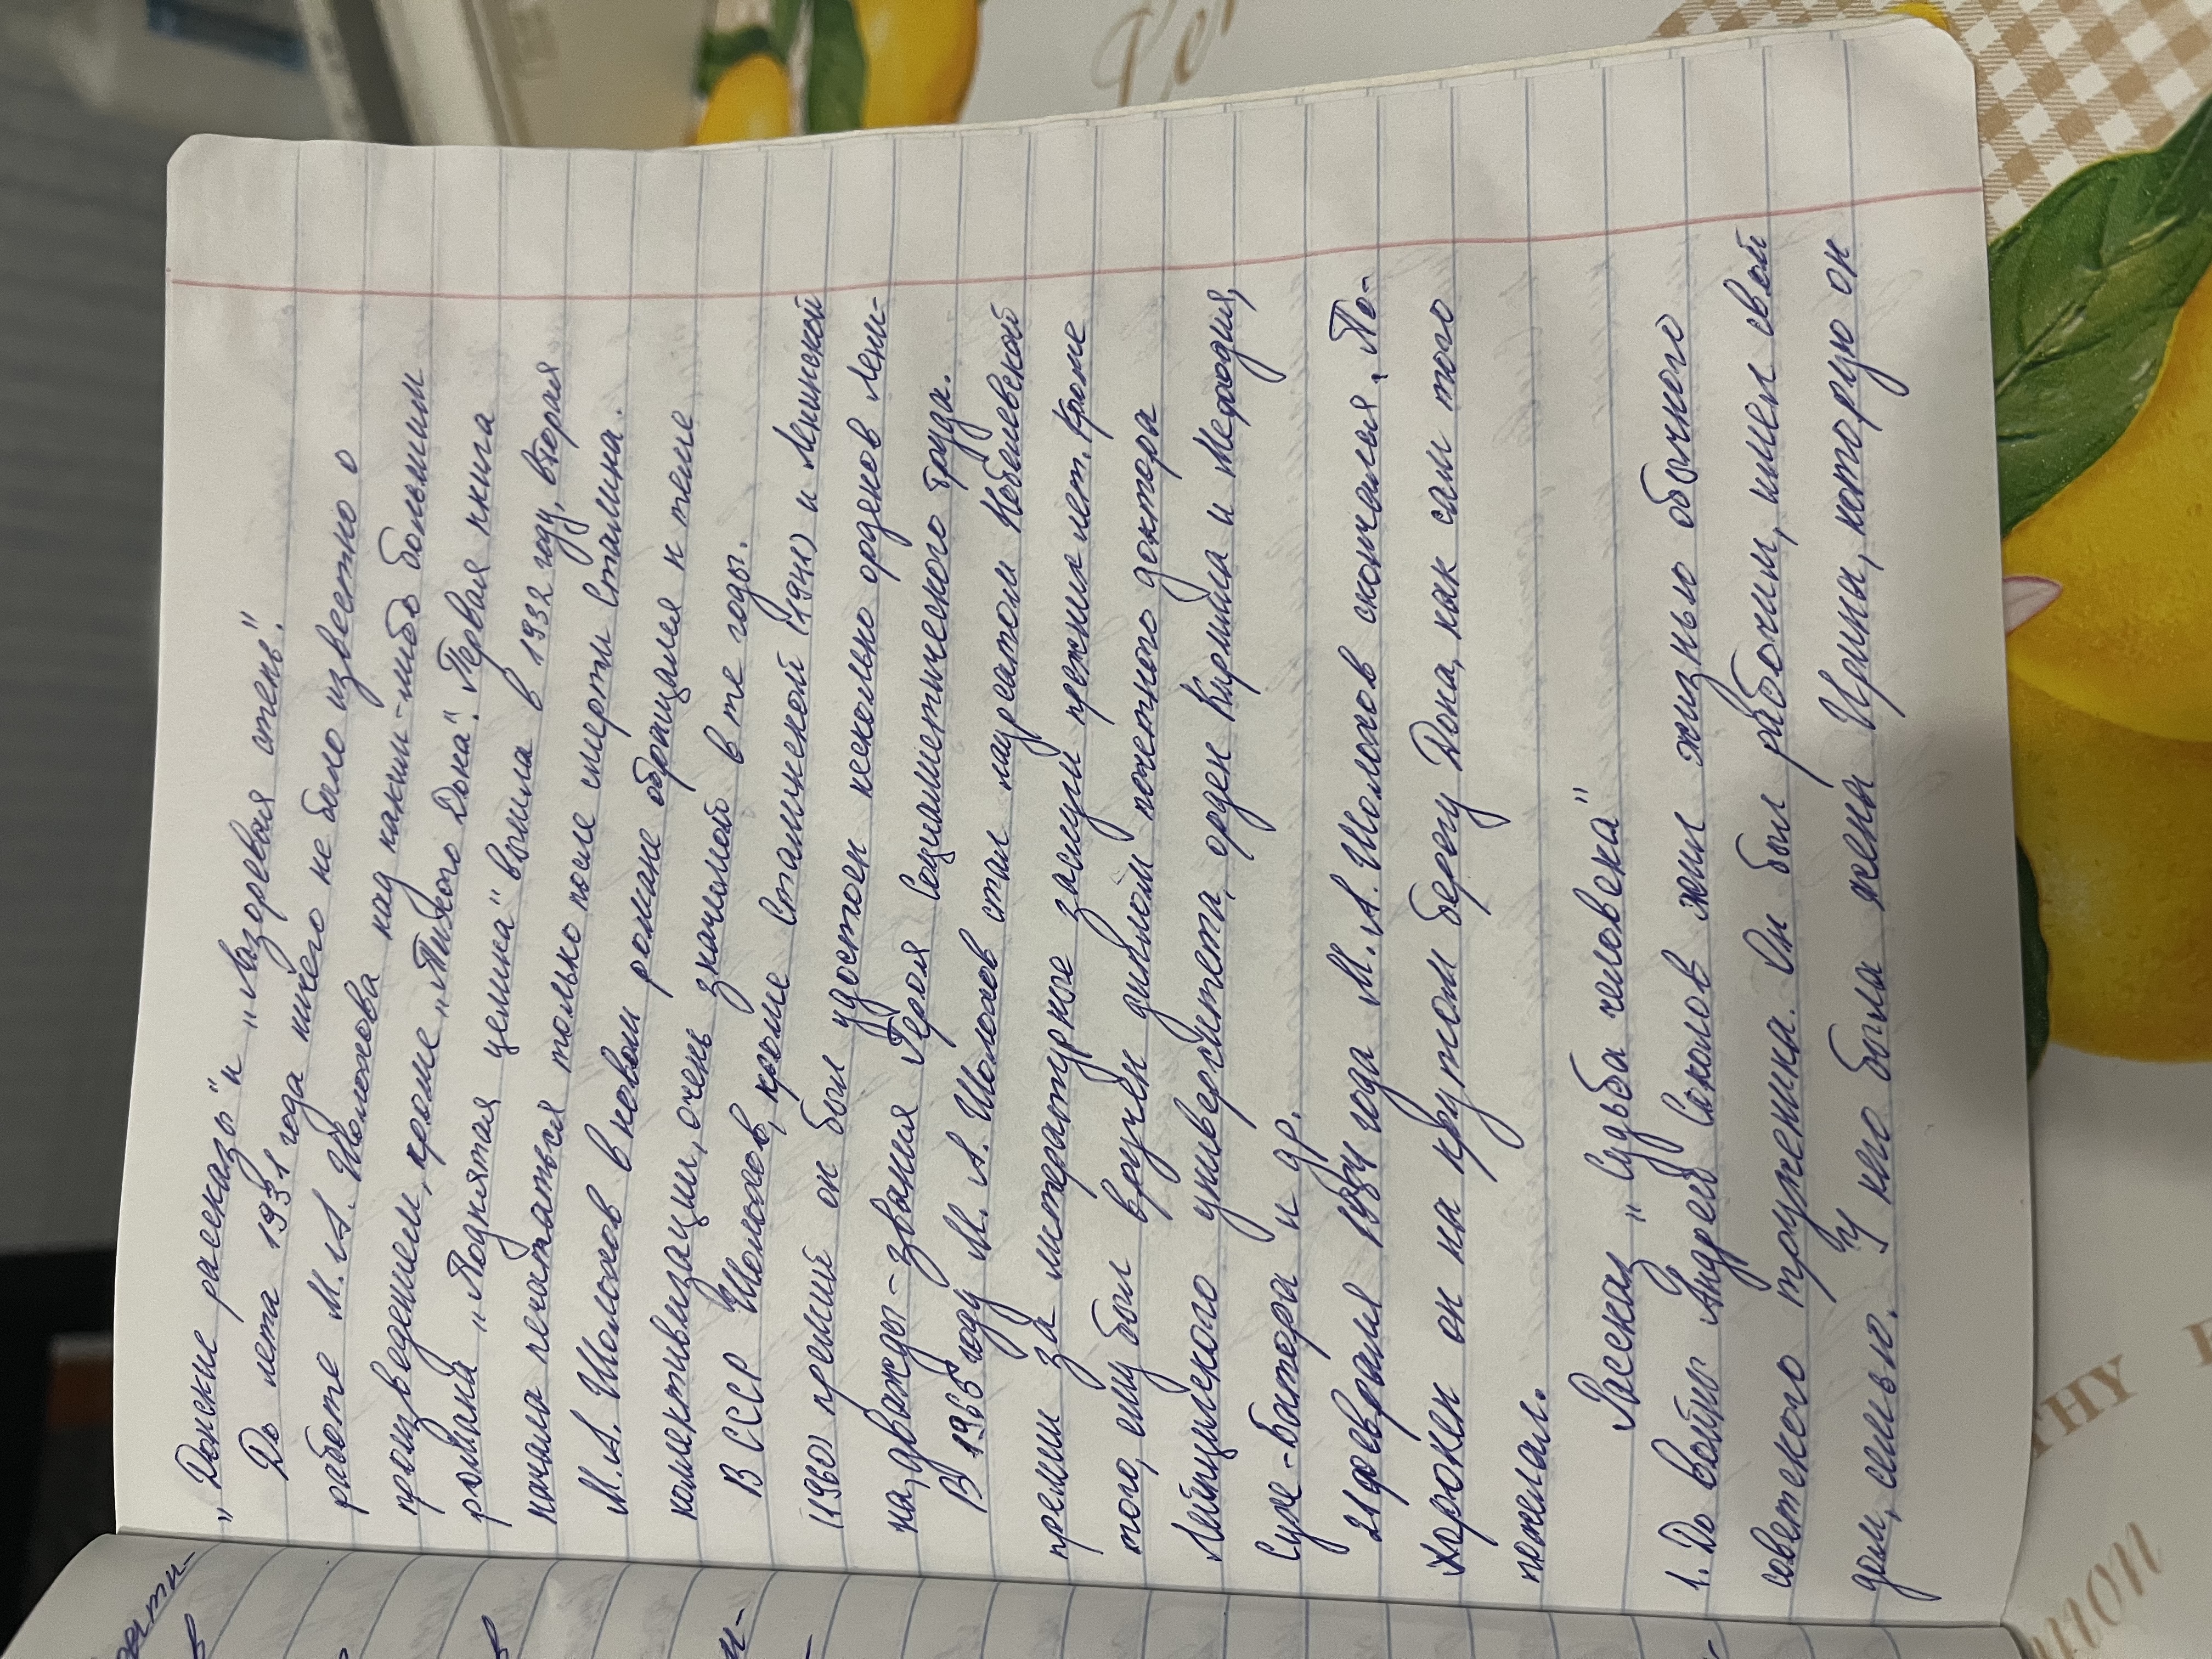 „Донские рассказы" и „Лазоревая степь".
До лета 1931 года ничего не было известно о
работе М. А. Шолохова над каким-либо большим
произведением, кроме „Тихого Дона". Первая книга
романа „Поднятая целина" вышла в 1932 году, вторая
начала печататься только после смерти Сталина.
М. А. Шолохов в новом романе обращался к теме
коллективизации, очень значимой в те годы.
В СССР Шолохов, кроме Сталинской (1941) и Ленинской
(1960) премий он был удостоен несколько орденов Лени-
на, дважды - звания Героя Социалистического труда.
В 1965 году М. А. Шолохов стал лауреатом Нобелевской
премии за литературные заслуги прежних лет. Кроме
того, ему был вручен диплом почетного доктора
Лейпцигского университета, орден Кирилла и Мефодия,
Сухе-Батора и др.
21 февраля 1984 года М. А. Шолохов скончался. По-
хоронен он на крутом берегу Дона, как сам того
пожелал.
Рассказ „Судьба человека"
1. До войны Андрей Соколов жил жизнью обычного
советского труженика. Он был рабочим, имел свой
дом, семью. У него была жена Ирина, которую он
THY
mon